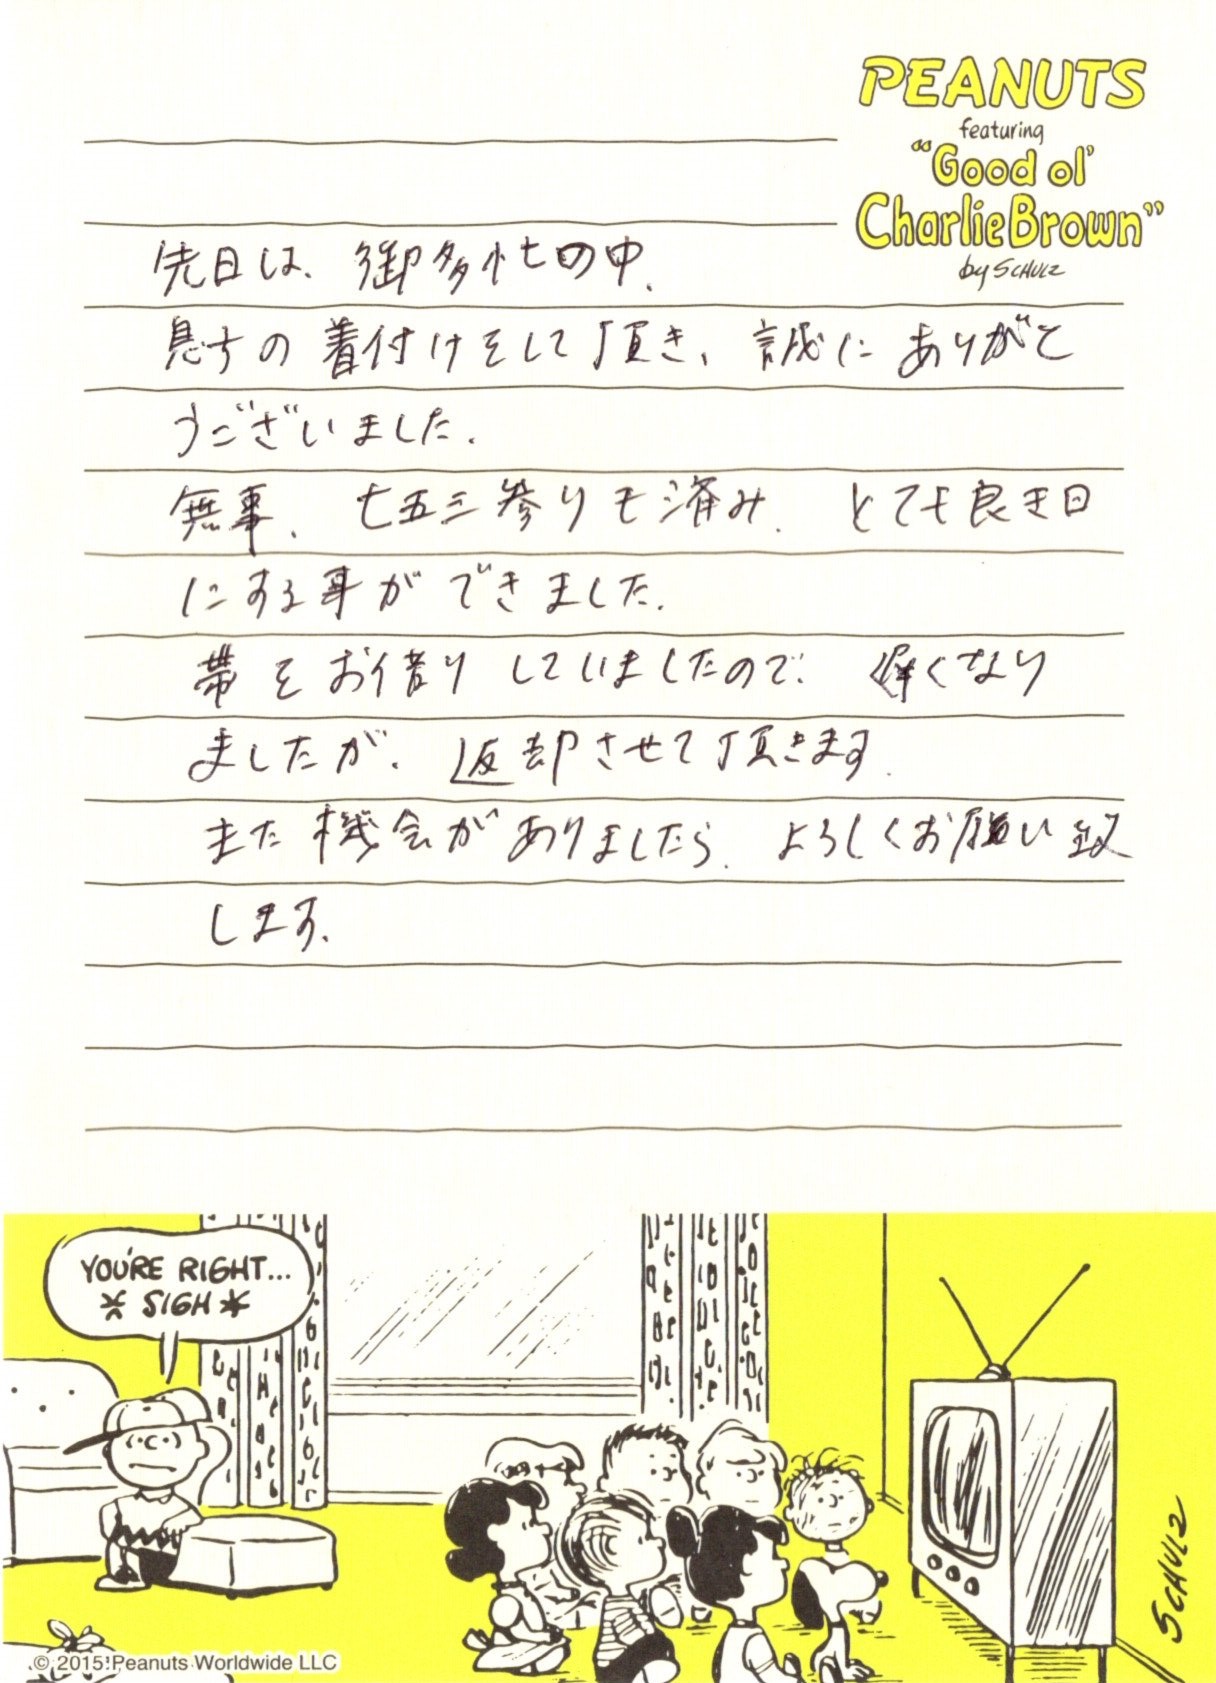 PEANUTS
featuring
"Good ol'
Charlie Brown"
by SCHULZ
先日は、御多忙の中、
息子の着付けをして頂き、誠にありがと
うございました。
無事、七五三参りも済み、とても良き日
にする事ができました。
帯をお借りしていましたので、遅くなり
ましたが、返却させて頂きます。
また機会がありましたら、よろしくお願い致
します。
YOU'RE RIGHT...
* SIGH *
SCHULZ
© 2015 Peanuts Worldwide LLC